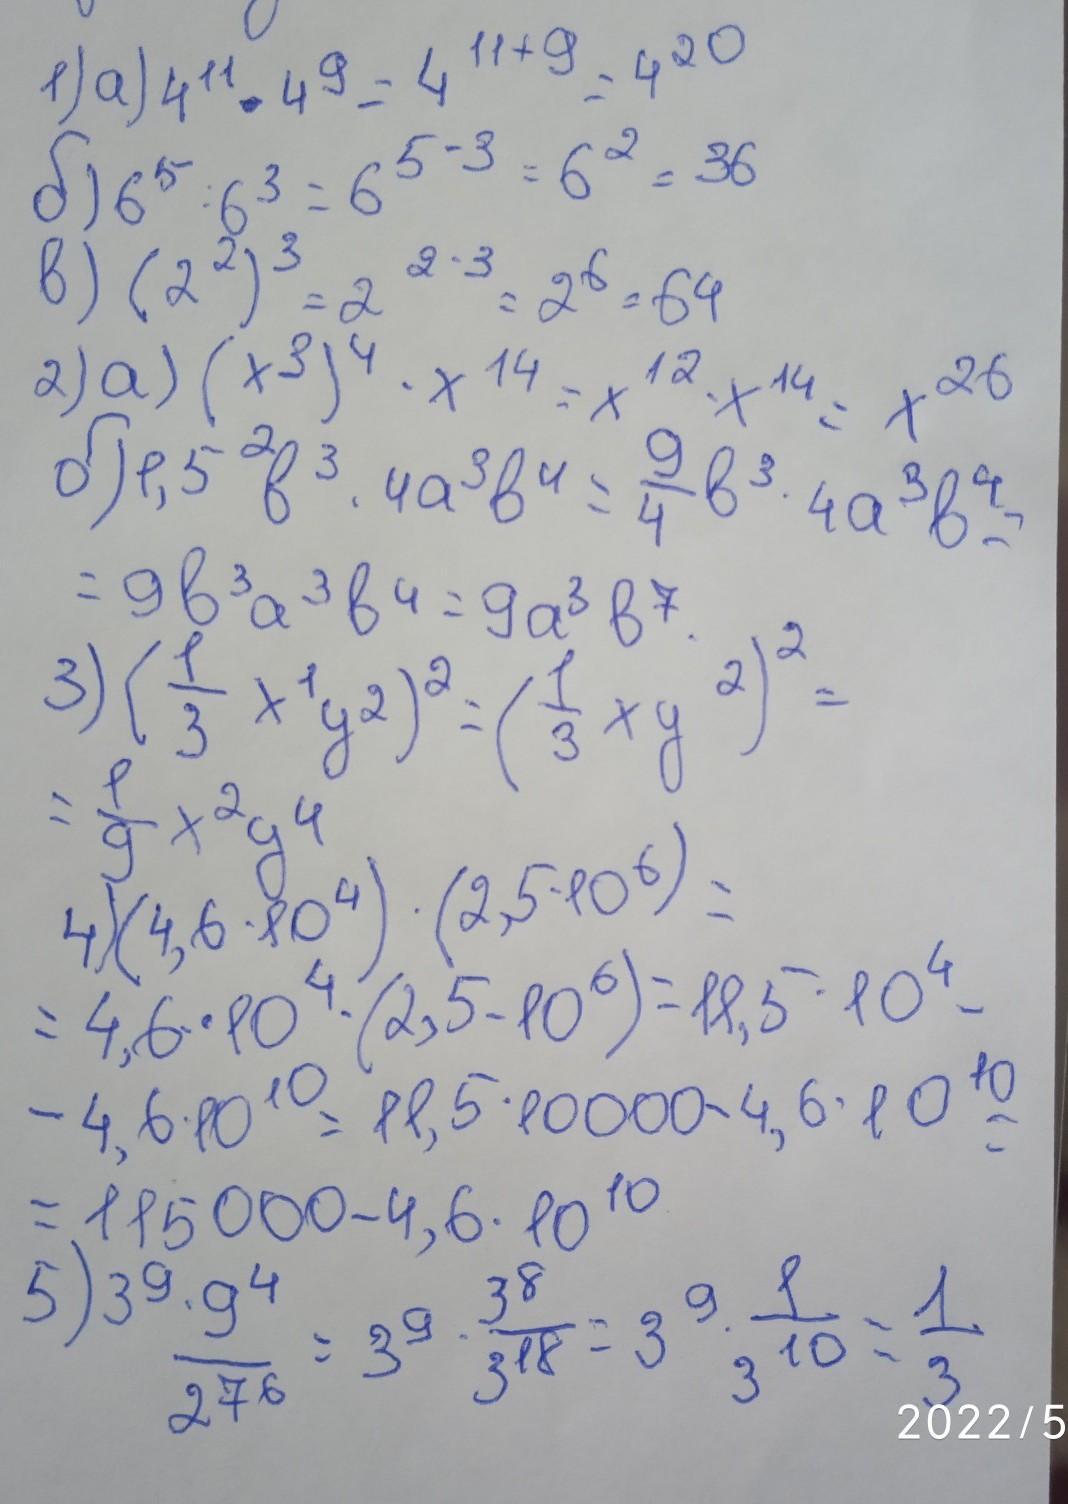 1) а) 4¹¹ · 4⁹ = 4¹¹⁺⁹ = 4²⁰
б) 6⁵ : 6³ = 6⁵⁻³ = 6² = 36
в) (2²)³ = 2²·³ = 2⁶ = 64
2) а) (x³)⁴ · x¹⁴ = x¹² · x¹⁴ = x²⁶
б) 1,5²b³ · 4a³b⁴ = 9/4 b³ · 4a³b⁴ =
= 9b³a³b⁴ = 9a³b⁷.
3) (1/3 x¹y²)² = (1/3 xy²)² =
= 1/9 x²y⁴
4) (4,6 · 10⁴) · (2,5 · 10⁶) =
= 4,6 · 10⁴ · (2,5 - 10⁶) = 11,5 · 10⁴ -
- 4,6 · 10¹⁰ = 11,5 · 10000 - 4,6 · 10¹⁰ =
= 115000 - 4,6 · 10¹⁰
5) 3⁹ · 9⁴/27⁶ = 3⁹ · 3⁸/3¹⁸ = 3⁹ · 1/3¹⁰ = 1/3
2022/5